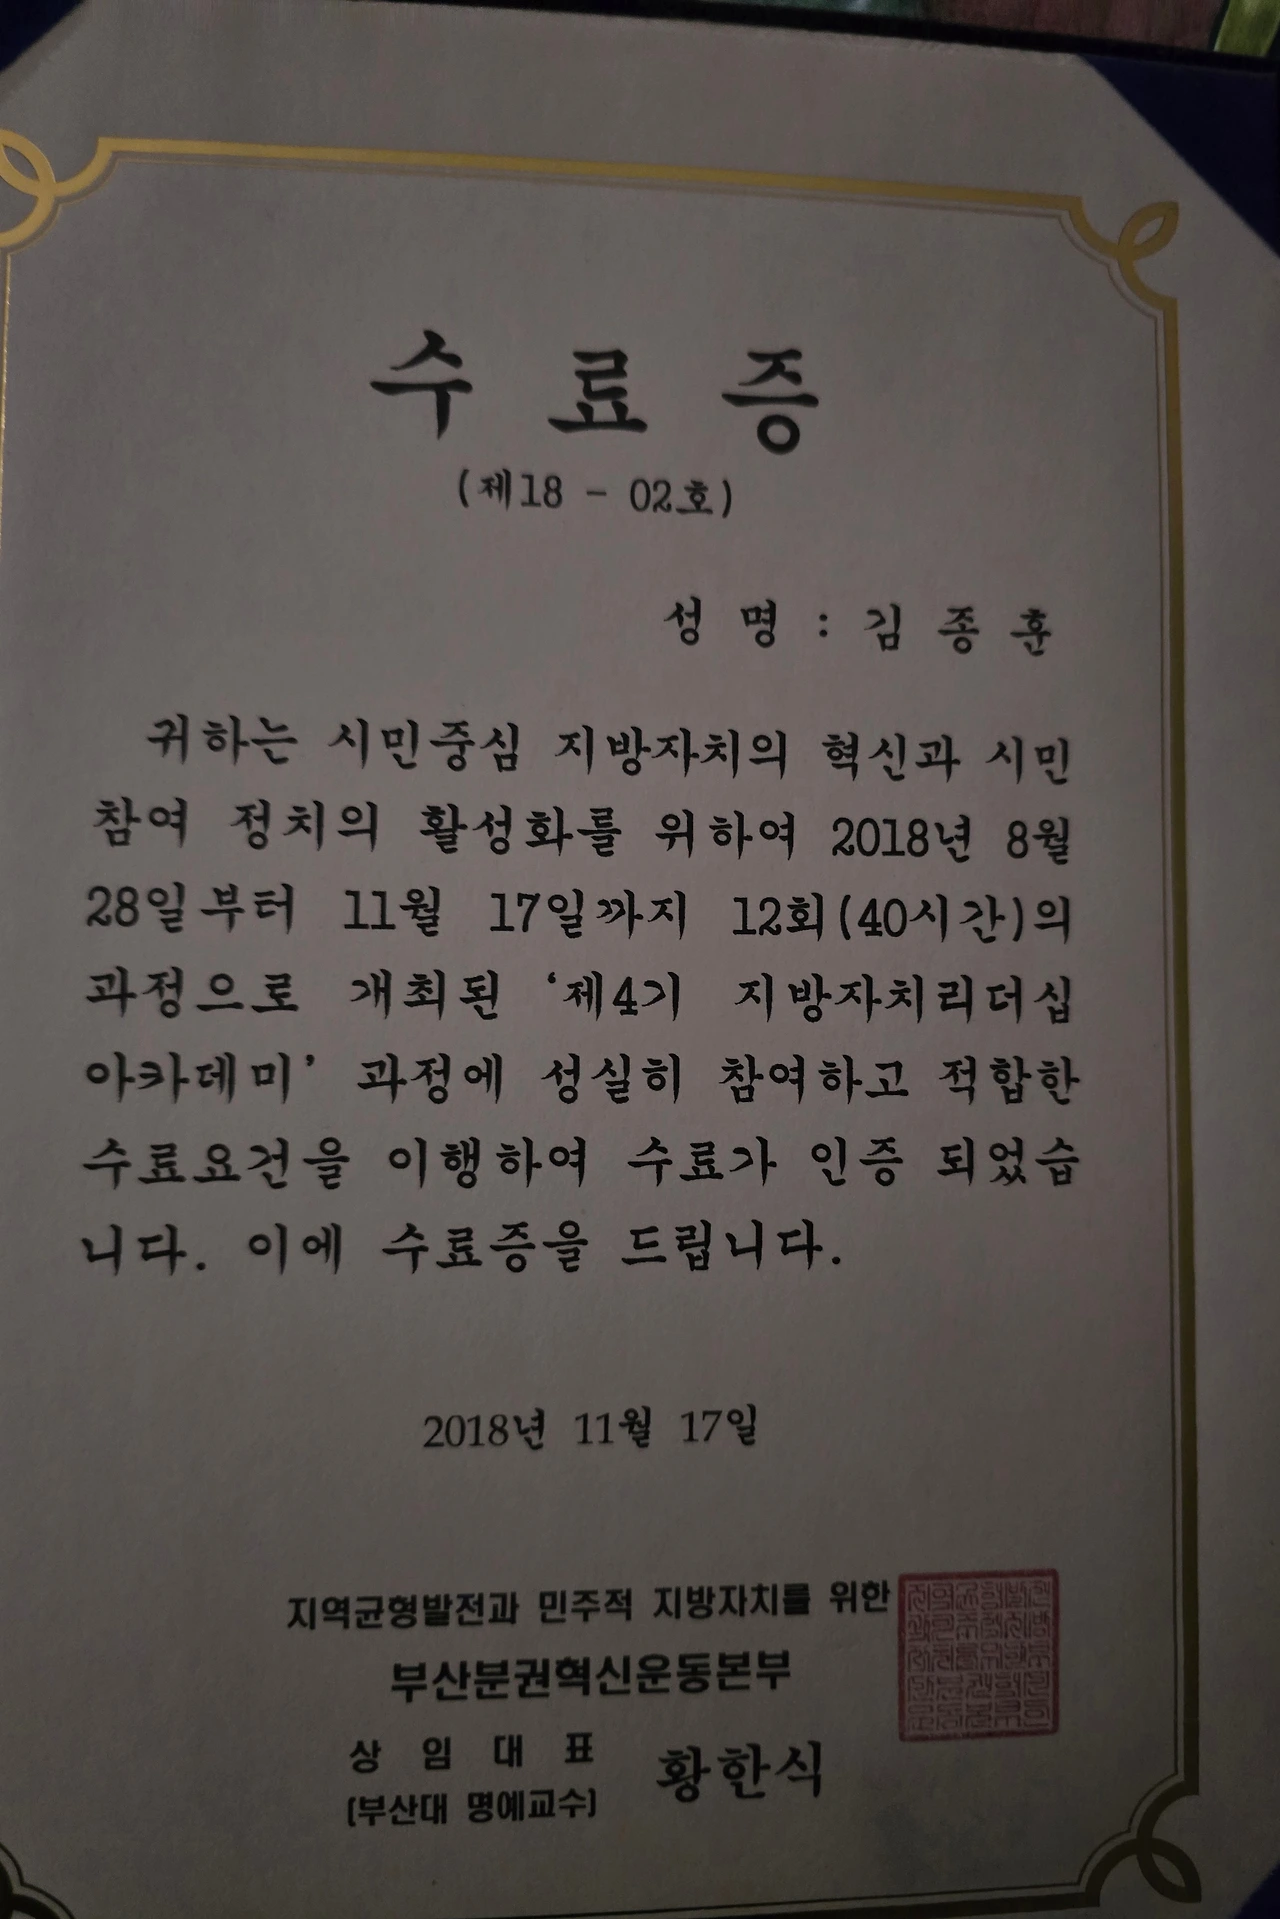 수 료 증
(제18 - 02호)
성 명 : 김 종 훈
귀하는 시민중심 지방자치의 혁신과 시민
참여 정치의 활성화를 위하여 2018년 8월
28일부터 11월 17일까지 12회(40시간)의
과정으로 개최된 ‘제4기 지방자치리더십
아카데미’ 과정에 성실히 참여하고 적합한
수료요건을 이행하여 수료가 인증 되었습
니다. 이에 수료증을 드립니다.
2018년 11월 17일
지역균형발전과 민주적 지방자치를 위한
부산분권혁신운동본부
상 임 대 표 황한식
(부산대 명예교수)